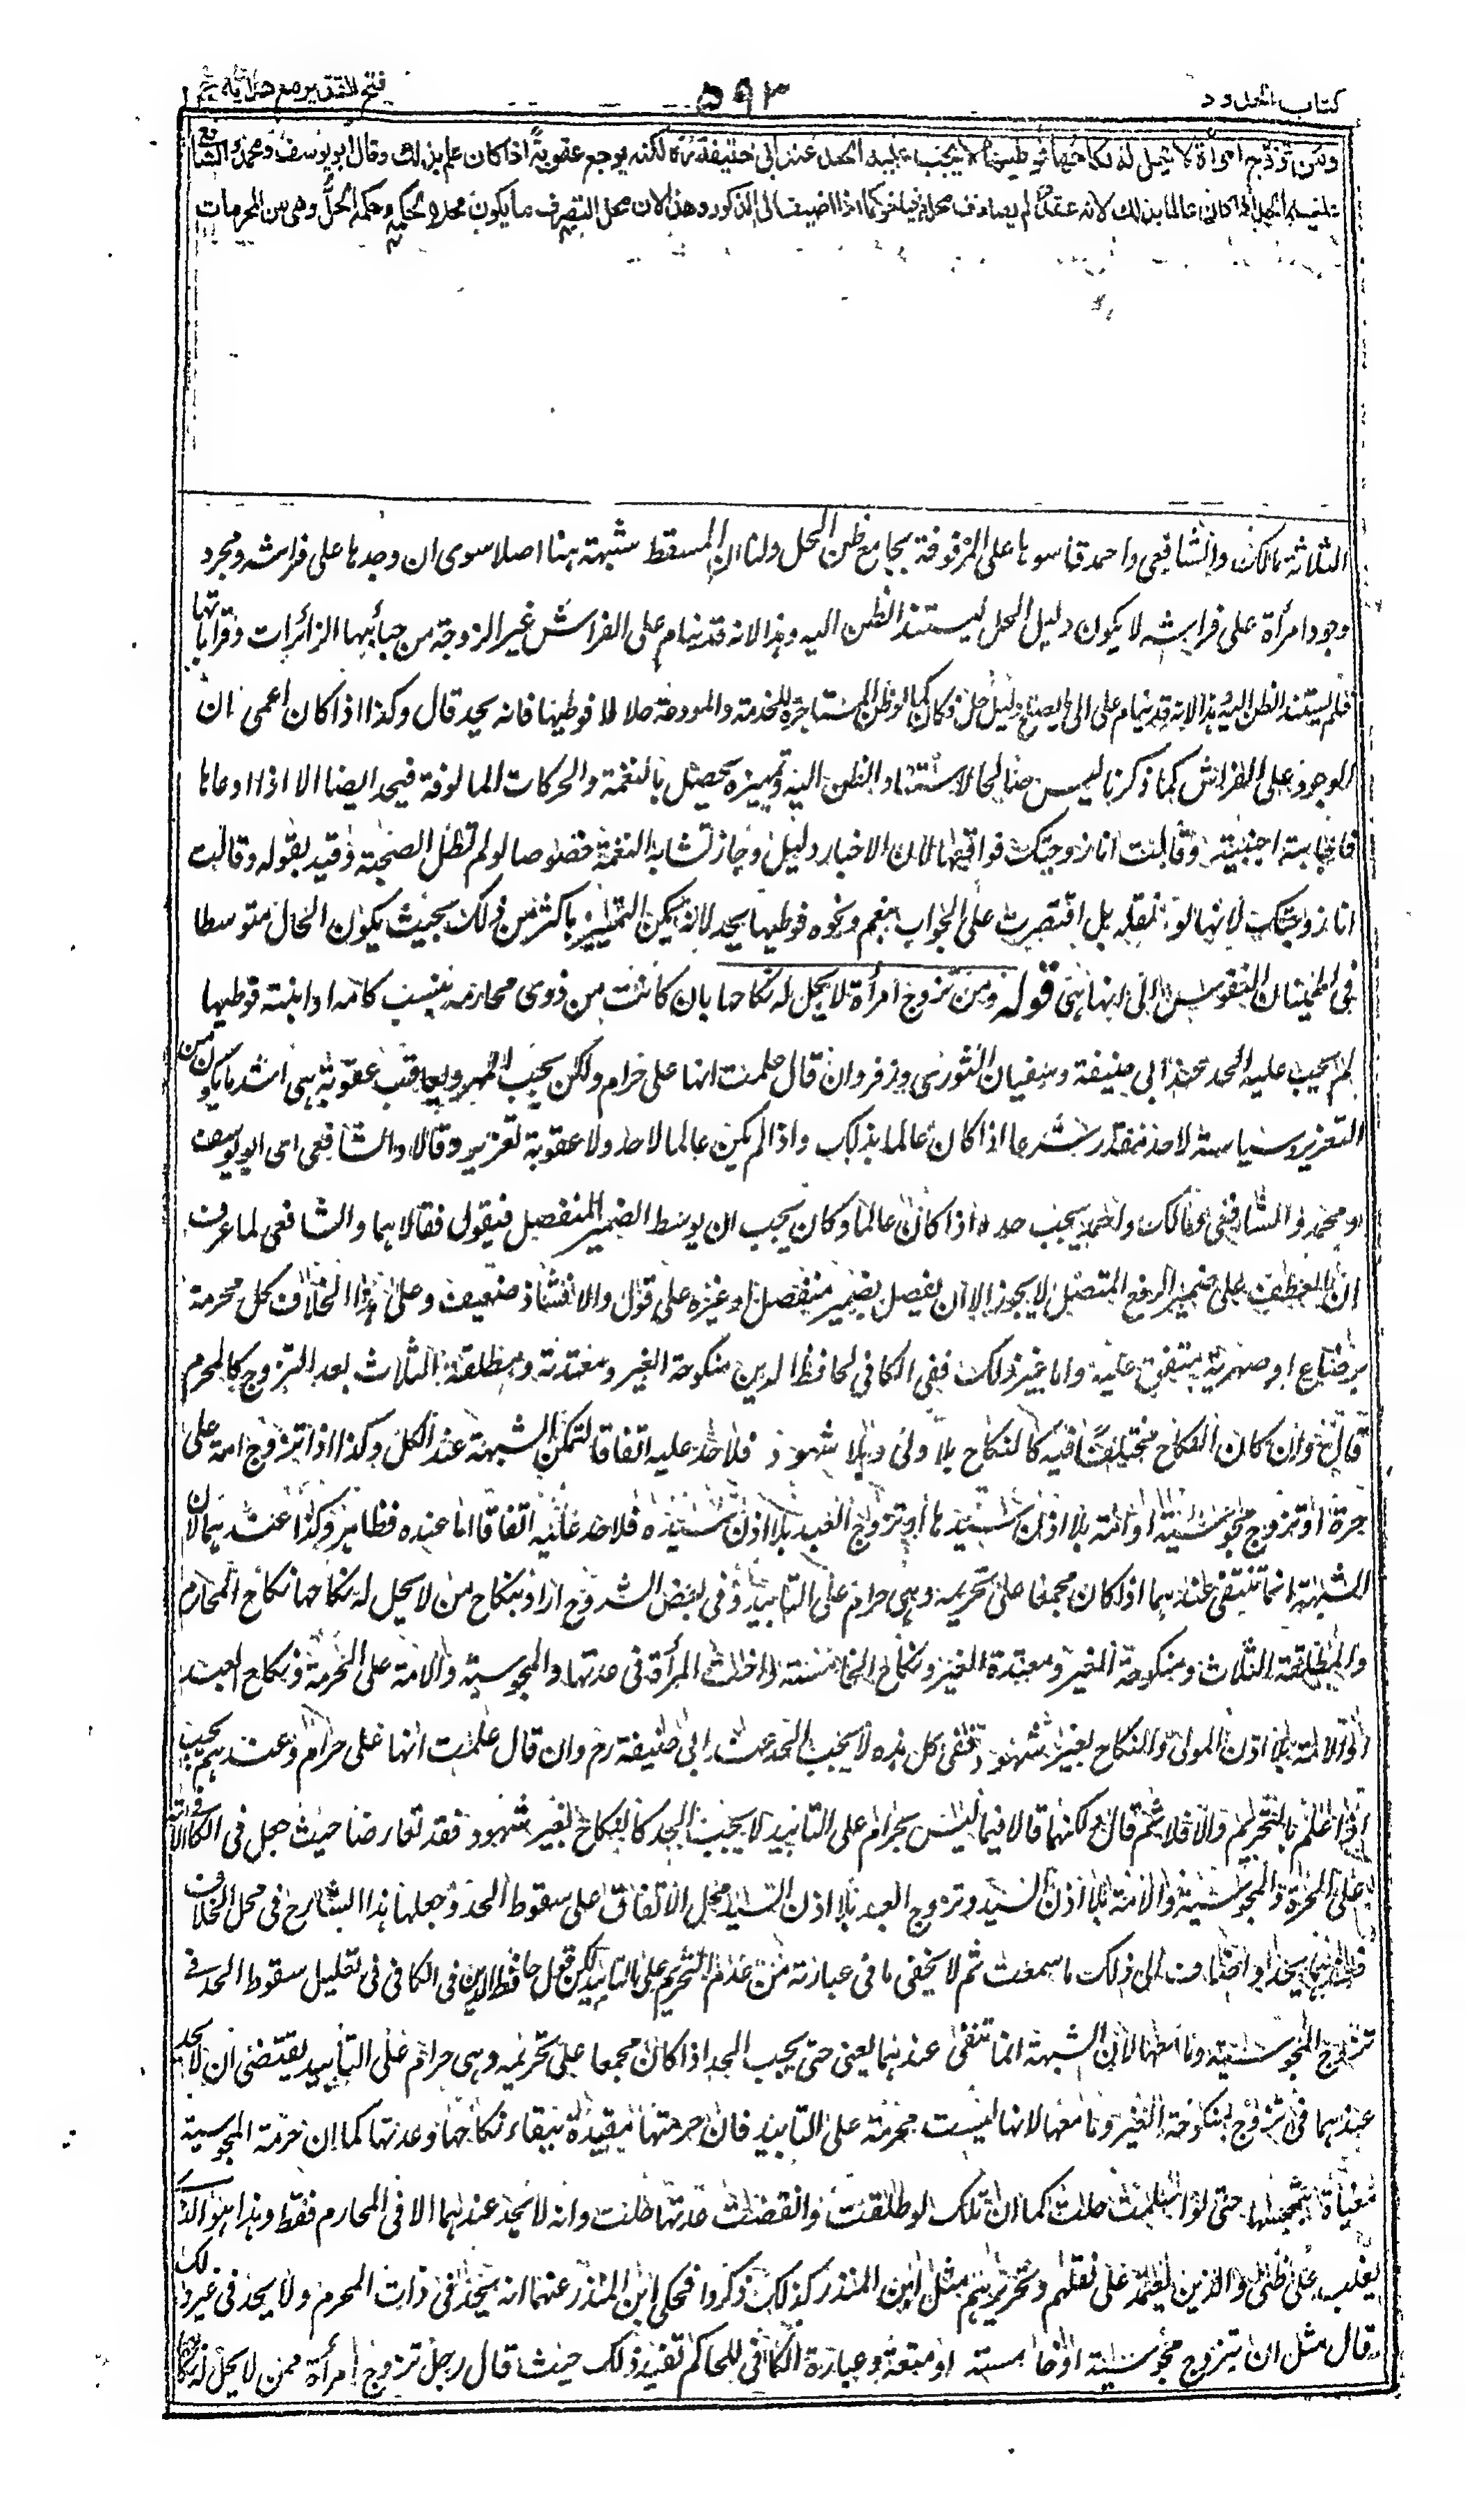 كتاب الحدود
٥٩٣
فتح القدير مع هداية
ومن تزوج امرأة لا يحل له نكاحها فوطيها لا يجب عليه الحد عند ابي حنيفة لكنه يوجع عقوبةً اذا كان علم بذلك وقال ابو يوسف ومحمد والشافعي
عليه الحد اذا كان عالما بذلك لانه عقد لم يصادف محله فيلغو كما اذا اضيف الى الذكور وهذا لان محل التصرف ما يكون محلا لحكمه وحكمه الحل وهى من المحرمات
الثلاثة مالك والشافعي واحمد قاسوها على المزفوفة بجامع ظن الحل ولنا ان المسقط شبهة هنا اصلا سوى ان وجدها على فراشه ومجرد
وجود امرأة على فراشه لا يكون دليل الحل ليستند الظن اليه وهذا لانه قد ينام على الفراش غير الزوجة من حبائبها الزائرات وقراباتها
فلم يستند الظن اليه هذا لانه قد ينام على الى ما يصلح دليل حل فكان كما لو ظن المستاجرة للخدمة والمودعة حلالا فوطيها فانه يحد قال وكذا اذا كان اعمى ان
الوجود على الفراش كما ذكرنا ليس صالحا لاستناد الظن اليه وتمييزه يحصل بالنغمة والحركات المالوفة فيحد ايضا الا اذا ادعاها
فاجابته اجنبية وقالت انا زوجتك فواقعها لان الاخبار دليل وجاز تشابه النغمة خصوصا لو لم تطل الصحبة وقيد بقوله وقالت
انا زوجتك لانها لو لم تقله بل اقتصرت على الجواب بنعم ونحوه فوطيها يحد لانه يمكن التمييز باكثر من ذلك بحيث يكون الحال متوسطا
فى اطمينان النفوس الى انها هى قوله ومن تزوج امرأة لا يحل له نكاحها بان كانت من ذوى محارمه بنسب كامه او ابنته فوطيها
لم يجب عليه الحد عند ابى حنيفة وسفيان الثورى وزفر وان قال علمت انها على حرام ولكن يجب المهر ويعاقب عقوبة هى اشد ما يكون من
التعزير سياسة لا حد مقدر شرعا اذا كان عالما بذلك واذا لم يكن عالما لا حد ولا عقوبة تعزير وقالا والشافعى اى ابو يوسف
ومحمد والشافعى وكذا مالك واحمد يجب حده اذا كان عالما وكان يجب ان يوسط الضمير المنفصل فيقول فقالا هما والشافعى لما عرف
ان العطف على ضمير الرفع المتصل لا يجوز الا ان يفصل بضمير منفصل او غيره على قول والا فشاذ ضعيف وعلى هذا الخلاف كل محرمة
برضاع او صهرية متفق عليه واما غير ذلك ففى الكافى لحافظ الدين منكوحة الغير ومعتدته ومطلقة الثلاث بعد التزوج كالمحرم
قال وان كان النكاح مختلفًا فيه كالنكاح بلا ولى وبلا شهود فلا حد عليه اتفاقا لتمكن الشبهة عند الكل وكذا اذا تزوج امة على
حرة او تزوج مجوسية او امة بلا اذن سيدها او تزوج العبد بلا اذن سيده فلا حد عليه اتفاقا اما عنده فظاهر وكذا عندهما لان
الشبهة انما تنتفى عندهما اذا كان مجمعا على تحريمه وهى حرام على التابيد وفى بعض الشروح اراد بنكاح من لا يحل له نكاحها نكاح المحارم
والمطلقة الثلاث ومنكوحة الغير ومعتدة الغير ونكاح الخامسة واخت المرأة فى عدتها والمجوسية والامة على الحرة ونكاح العبد
او الامة بلا اذن المولى والنكاح بغير شهود ففى كل هذه لا يجب الحد عند ابى حنيفة رح وان قال علمت انها على حرام وعندهم يجب
اذا علم بالتحريم والا فلا ثم قال ولكنهما قالا فيما ليس بحرام على التابيد لا يجب الحد كالنكاح بغير شهود فقد تعارضا حيث جعل فى الكافى الامة
على الحرة والمجوسية والامة بلا اذن السيد وتزوج العبد بلا اذن السيد محل الاتفاق على سقوط الحد وجعلها هذا الشارح فى محل الخلاف
فعندهما يحد واضاف الى ذلك ما سمعت ثم لا يخفى ما فى عبارته من عدم التحرير على التابيد لكن قول حافظ الدين فى الكافى فى تعليل سقوط الحد فى
تزوج المجوسية وما معها لان الشبهة انما تنتفى عندهما يعنى حتى يجب الحد اذا كان مجمعا على تحريمه وهى حرام على التأبيد يقتضى ان لا يحد
عندهما فى تزوج منكوحة الغير وما معها لانها ليست محرمة على التابيد فان حرمتها مقيدة ببقاء نكاحها وعدتها كما ان حرمة المجوسية
مغياة بتمجسها حتى لو اسلمت حلت كما ان تلك لو طلقت وانقضت عدتها حلت وانه لا يحد عندهما الا فى المحارم فقط وهذا هو الذى
يغلب على ظنى والذين يعتمد على نقلهم وتحريرهم مثل ابن المنذر كذلك ذكروا فحكى ابن المنذر عنهما انه يحد فى ذات المحرم ولا يحد فى غير ذلك
قال مثل ان يتزوج مجوسية او خامسة او معتدة وعبارة الكافى للحاكم تفيد ذلك حيث قال رجل تزوج امرأة ممن لا يحل له نكاحها